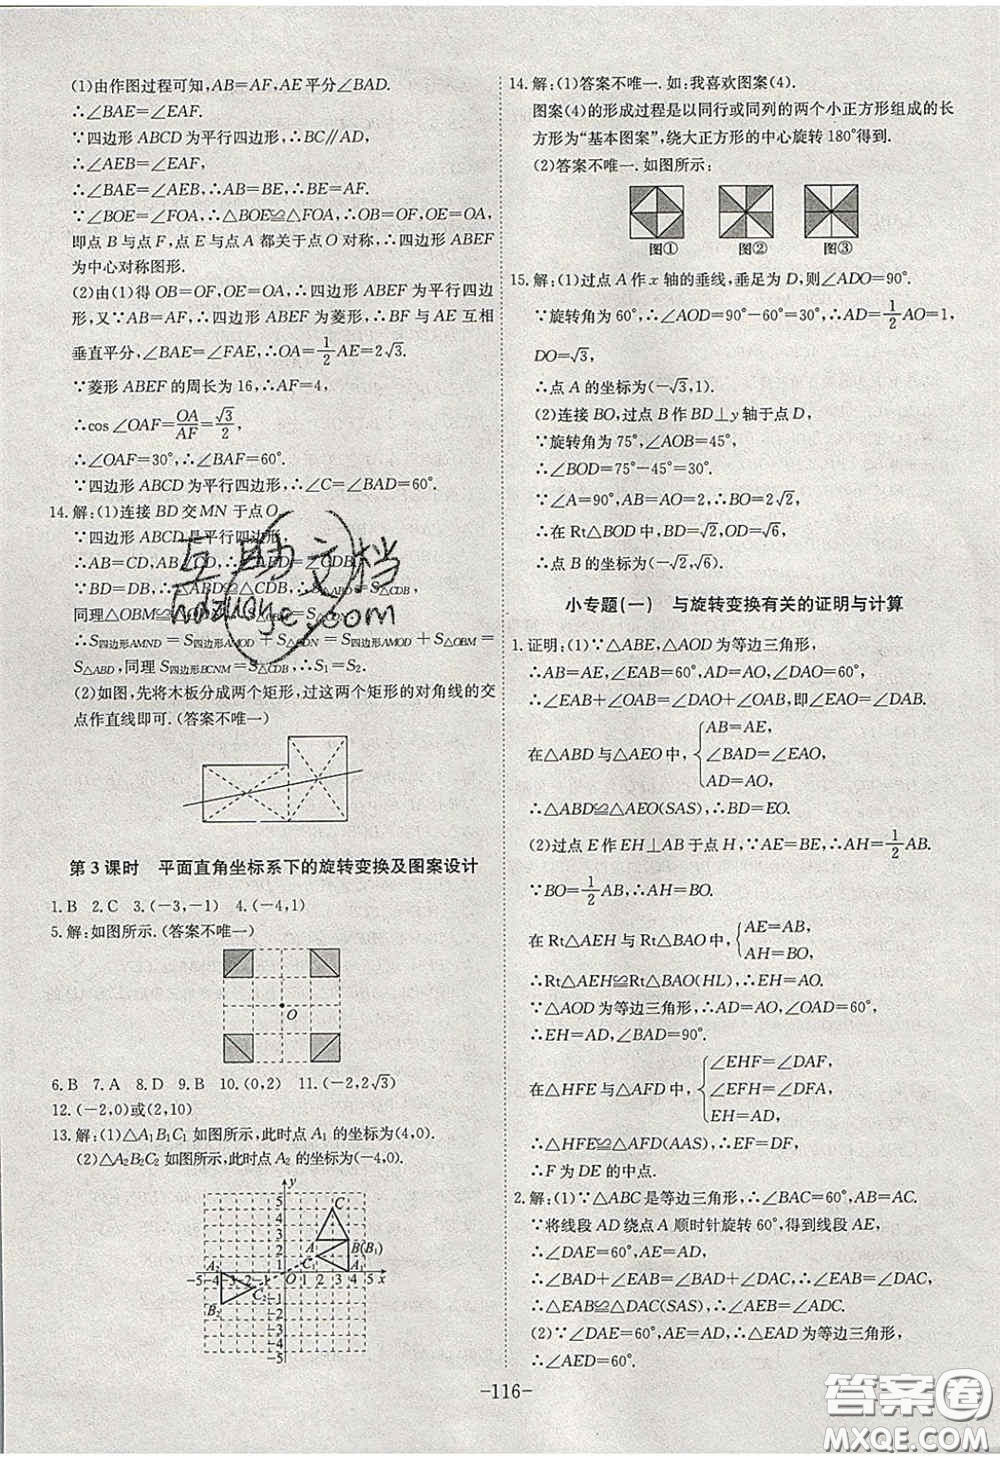 (1)由作图过程可知,AB=AF,AE平分∠BAD.
∴∠BAE=∠EAF.
∵四边形ABCD为平行四边形,∴BC∥AD,
∴∠AEB=∠EAF,
∴∠BAE=∠AEB,∴AB=BE,∴BE=AF.
∵∠BOE=∠FOA,∴△BOE≌△FOA,∴OB=OF,OE=OA,
即点B与点F,点E与点A都关于点O对称,∴四边形ABEF
为中心对称图形.
(2)由(1)得OB=OF,OE=OA,∴四边形ABEF为平行四边
形,又∵AB=AF,∴四边形ABEF为菱形,∴BF与AE互相
垂直平分,∠BAE=∠FAE,∴OA=1/2AE=2√3.
∵菱形ABEF的周长为16,∴AF=4,
∴cos∠OAF=OA/AF=√3/2,
∴∠OAF=30°,∴∠BAF=60°.
∵四边形ABCD为平行四边形,∴∠C=∠BAD=60°.
14.解:(1)连接BD交MN于点O,
∵四边形ABCD是平行四边形,
∴AB=CD,AB∥CD,∴∠ABD=∠CDB,
∵BD=DB,∴△ABD≌△CDB,∴S△ABD=S△CDB,
同理△OBM≌△ODN,∴S△OBM=S△ODN,
∴S四边形AMND=S四边形AMOD+S△ODN=S四边形AMOD+S△OBM=
S△ABD,同理S四边形BCNM=S△CDB,∴S1=S2.
(2)如图,先将木板分成两个矩形,过这两个矩形的对角线的交
点作直线即可.(答案不唯一)
第3课时 平面直角坐标系下的旋转变换及图案设计
1.B 2.C 3.(-3,-1) 4.(-4,1)
5.解:如图所示.(答案不唯一)
O
6.B 7.A 8.D 9.B 10.(0,2) 11.(-2,2√3)
12.(-2,0)或(2,10)
13.解:(1)△A1B1C1如图所示,此时点A1的坐标为(4,0).
(2)△A2B2C2如图所示,此时点A2的坐标为(-4,0).
y
5
4
3
2
1
C
A
B(B1)
C1
A1
A2
B2
C2
-4-3-2-1 O 1 2 3 4 5 x
-1
-2
-3
-4
-5
14.解:(1)答案不唯一.如:我喜欢图案(4).
图案(4)的形成过程是以同行或同列的两个小正方形组成的长
方形为“基本图案”,绕大正方形的中心旋转180°得到.
(2)答案不唯一.如图所示:
图① 图② 图③
15.解:(1)过点A作x轴的垂线,垂足为D,则∠ADO=90°.
∵旋转角为60°,∴∠AOD=90°-60°=30°,∴AD=1/2AO=1,
DO=√3,
∴点A的坐标为(-√3,1).
(2)连接BO,过点B作BD⊥y轴于点D,
∵旋转角为75°,∠AOB=45°,
∴∠BOD=75°-45°=30°.
∵∠A=90°,AB=AO=2,∴BO=2√2,
∴在Rt△BOD中,BD=√2,OD=√6,
∴点B的坐标为(-√2,√6).
小专题(一) 与旋转变换有关的证明与计算
1.证明:(1)∵△ABE,△AOD为等边三角形,
∴AB=AE,∠EAB=60°,AO=AD,∠DAO=60°,
∴∠EAB+∠OAB=∠DAO+∠OAB,即∠EAO=∠DAB.
在△ABD与△AEO中,{AB=AE,
∠BAD=∠EAO,
AD=AO,
∴△ABD≌△AEO(SAS),∴BD=EO.
(2)过点E作EH⊥AB于点H,∵AE=BE,∴AH=1/2AB.
∵BO=1/2AB,∴AH=BO.
在Rt△AEH与Rt△BAO中,{AE=AB,
AH=BO,
∴Rt△AEH≌Rt△BAO(HL),∴EH=AO.
∵△AOD为等边三角形,∴AD=AO,∠OAD=60°.
∴EH=AD,∠BAD=90°.
在△HFE与△AFD中,{∠EHF=∠DAF,
∠EFH=∠DFA,
EH=AD,
∴△HFE≌△AFD(AAS),∴EF=DF.
∴F为DE的中点.
2.解:(1)∵△ABC是等边三角形,∴∠BAC=60°,AB=AC.
∵将线段AD绕点A顺时针旋转60°,得到线段AE,
∴∠DAE=60°,AE=AD,
∴∠BAD+∠EAB=∠BAD+∠DAC,∴∠EAB=∠DAC,
∴△EAB≌△DAC(SAS),∴∠AEB=∠ADC.
(2)∵∠DAE=60°,AE=AD,∴△EAD为等边三角形,
∴∠AED=60°.
-116-
互助文档
hdzuoye.com
答案圈
MXQE.COM